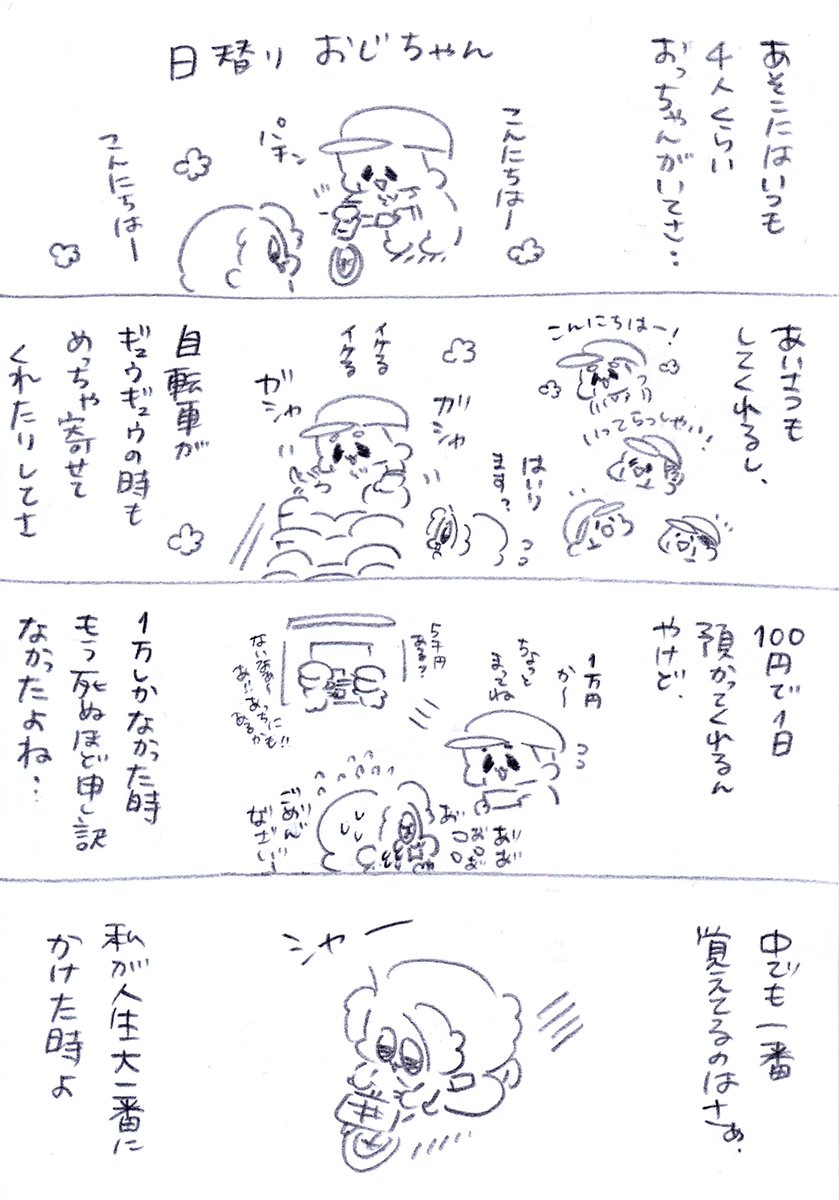 日替り おじちゃん
あそこにはいつも
4人くらい
おっちゃんがいてさ…
こんにちはー
パチン
こんにちはー
あいさつも
してくれるし、
こんにちはー!
いってらっしゃい!
はいり
ます?
ガシャ
イケる
イケる
ガシャ
自転車が
ギュウギュウの時も
めっちゃ寄せて
くれたりしてさ
100円で1日
預かってくれるん
やけど、
1万円
か〜
ちょっと
まってね
5千円
ある?
ないなぁ〜
あ!あっちに
あるかも!!
ごめんな
なざい!
1万しかなかった時
もう死ぬほど申し訳
なかったよね…
中でも一番
覚えてるのはさぁ、
シャー
私が人生大一番に
かけた時よ